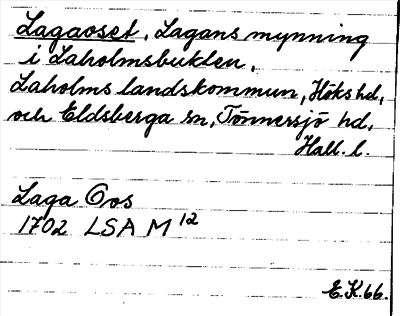 Lagaoset, Lagans mynning
i Laholmsbukten,
Laholms landskommun, Höks hd,
och Eldsberga sn, Tönnersjö hd,
Hall. l.
Laga Oos
1702 LSA M 12
E.K.66.